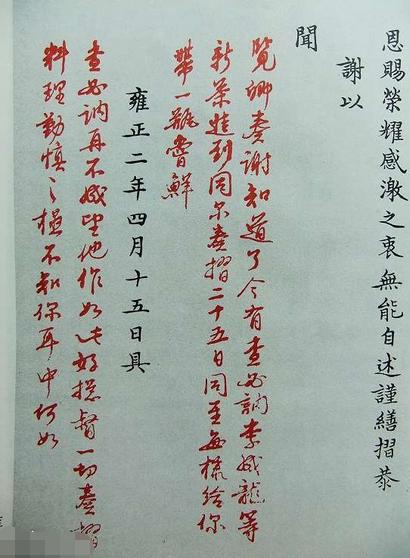 恩賜榮耀感激之衷無能自述謹繕摺恭
謝以
聞
覽卿奏謝知道了今有查必訥李成龍等
新茶進到同尔奏摺二十五日同至每樣給你
帶一瓶嘗鮮
雍正二年四月十五日具
查必訥再不成望他作如此好總督一切奏摺
料理勤慎之極不知你耳中何如